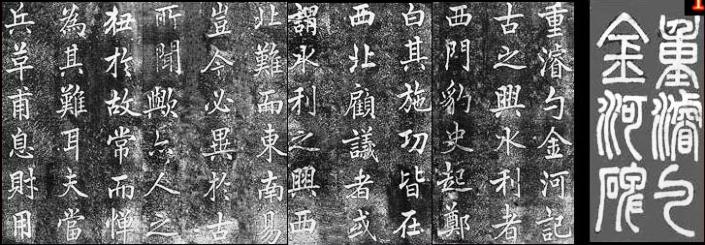 重濬勺
金河碑
重濬勺金河記
古之興水利者
西門豹史起鄭
白其施功皆在
西北顧議者或
謂水利之興西
北難而東南易
豈今必異於古
所聞歟亦人之
狃於故常而憚
為其難耳夫當
兵革甫息財用
1